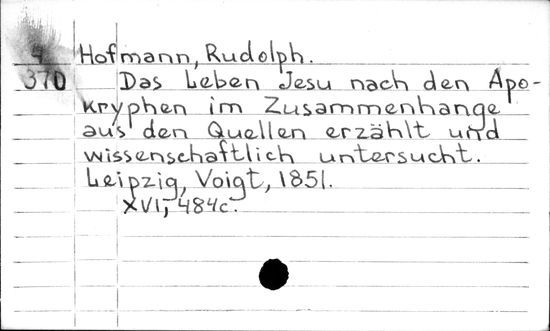 4 Hofmann, Rudolph.
370 Das Leben Jesu nach den Apo-
kryphen im Zusammenhange
aus den Quellen erzählt und
wissenschaftlich untersucht.
Leipzig, Voigt, 1851.
XVI, 484c.